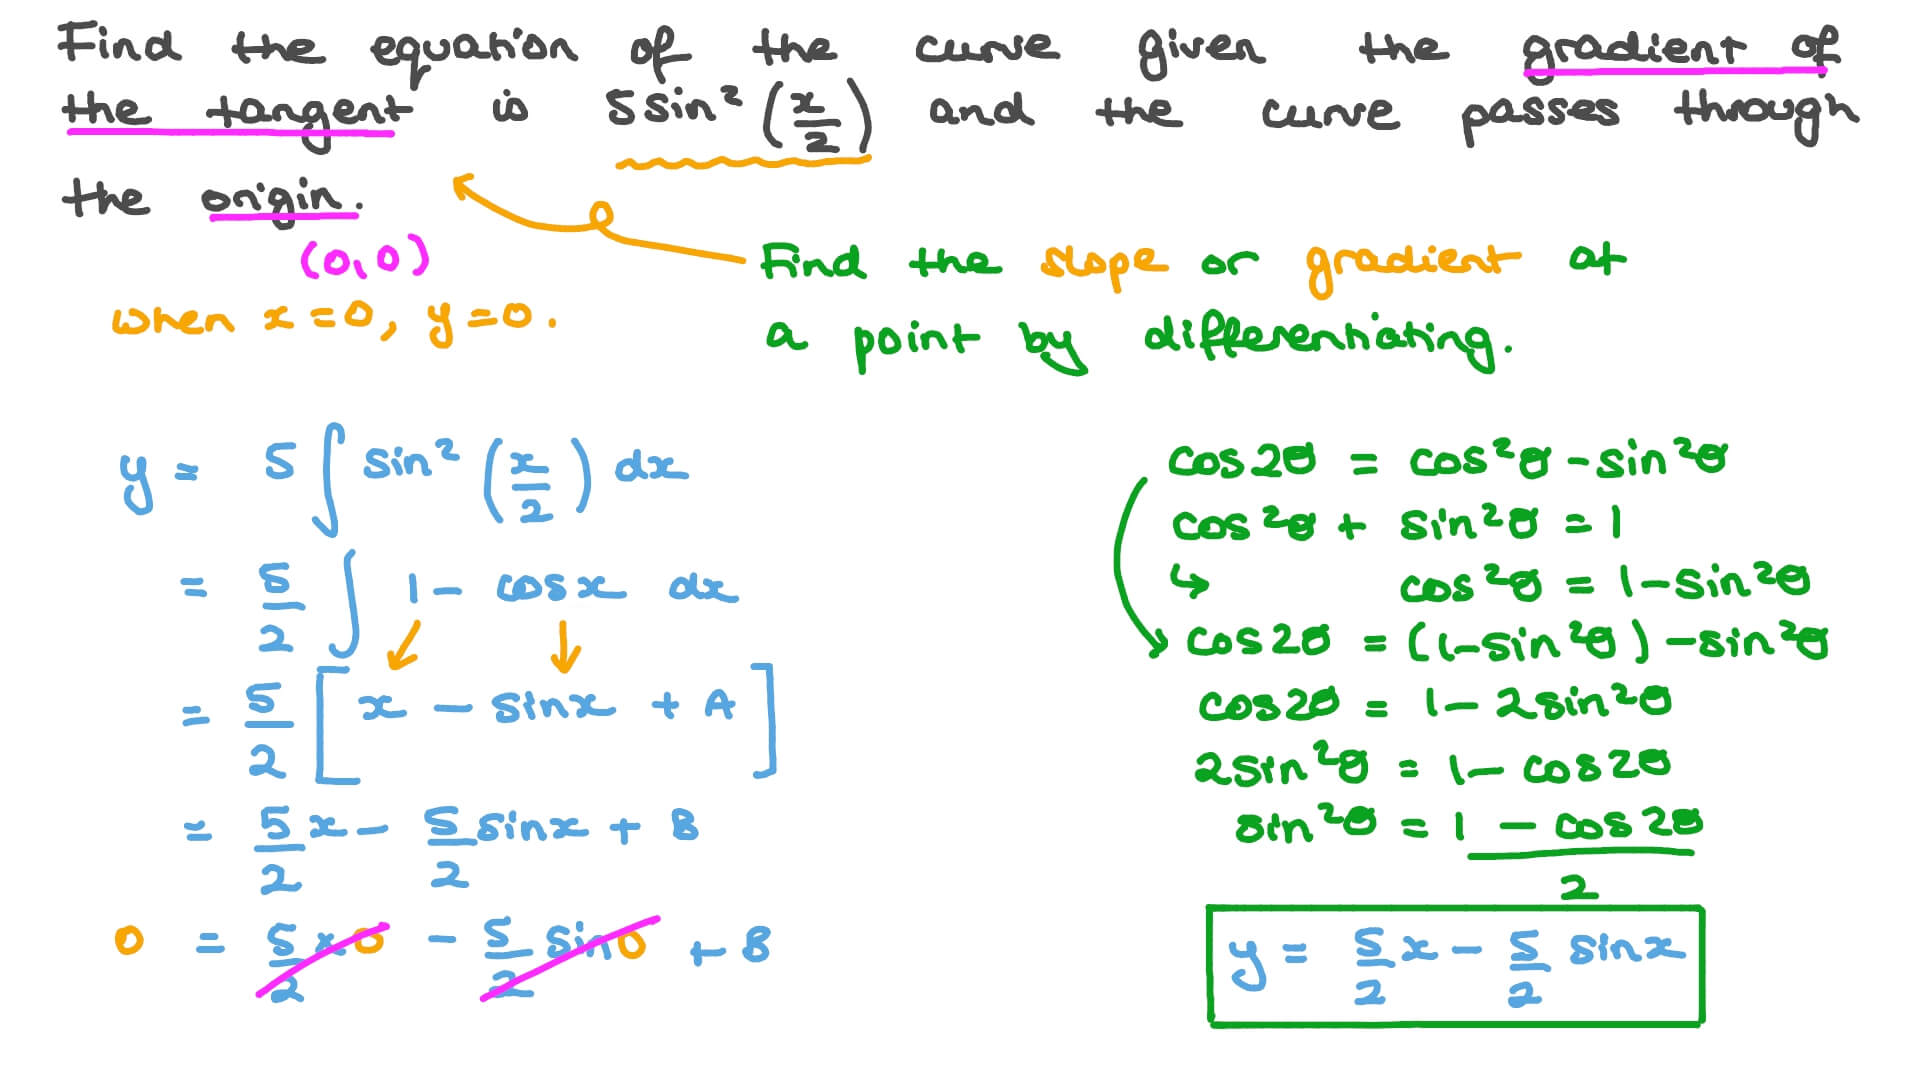 Find the equation of the curve given the gradient of
the tangent is 5sin²(x/2) and the curve passes through
the origin.
(0,0)
when x=0, y=0.
Find the slope or gradient at
a point by differentiating.
y = 5∫sin²(x/2) dx
= 5/2 ∫ 1 - cosx dx
= 5/2 [x - sinx + A]
= 5/2 x - 5/2 sinx + B
0 = 5/2 x 0 - 5/2 sin0 + B
cos2θ = cos²θ - sin²θ
cos²θ + sin²θ = 1
↳ cos²θ = 1 - sin²θ
cos2θ = (1-sin²θ) - sin²θ
cos2θ = 1 - 2sin²θ
2sin²θ = 1 - cos2θ
sin²θ = 1 - cos2θ
2
y = 5/2 x - 5/2 sinx